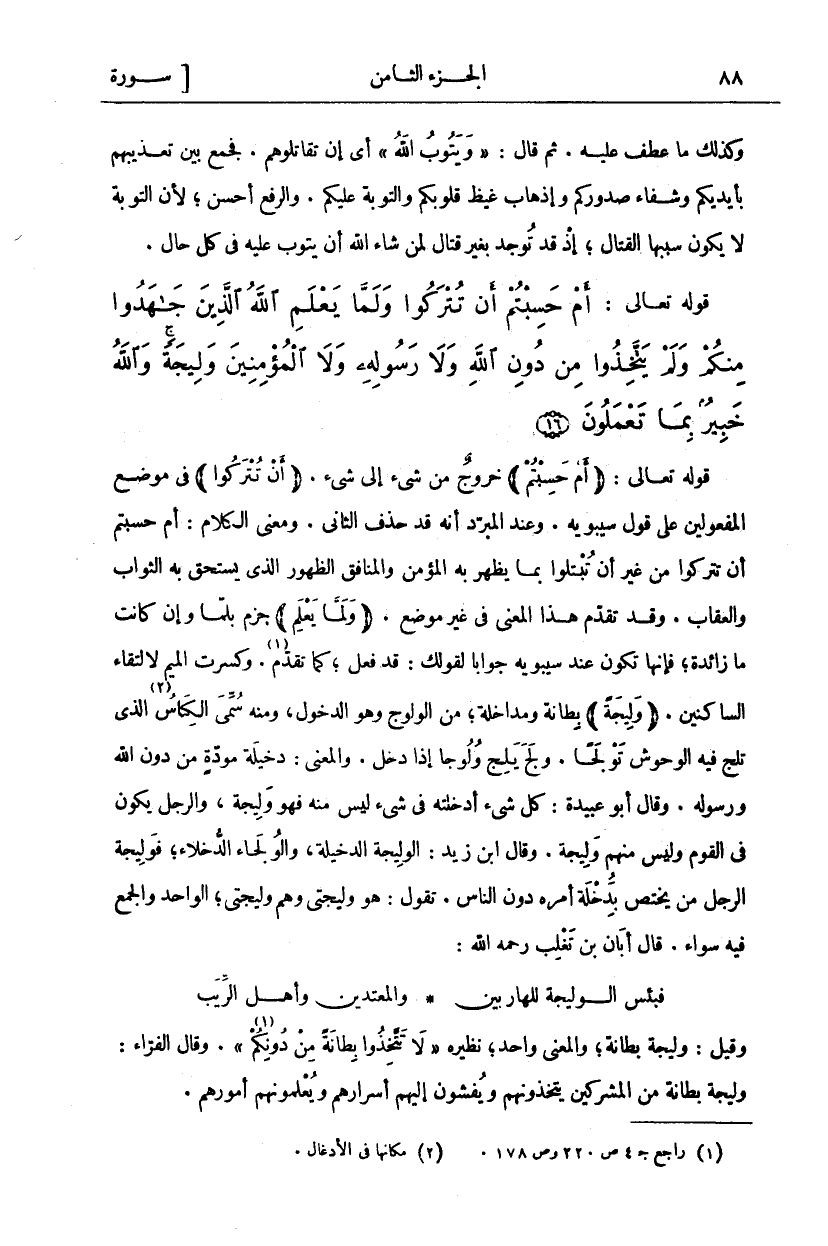 ٨٨ الجـزء الثـامن [ سـورة
وكذلك ما عطف عليـه . ثم قال : « وَيَتُوبُ اللهُ » أى إن تقاتلوهم . فجمع بين تعـذيبهم
بأيديكم وشـفاء صدوركم وإذهاب غيظ قلوبكم والتوبة عليكم . والرفع أحسن ؛ لأن التوبة
لا يكون سببها القتال ؛ إذْ قد تُوجد بغير قتال لمن شاء الله أن يتوب عليه فى كل حال .
قوله تعـالى : أَمْ حَسِبْتُمْ أَن تُتْرَكُوا وَلَمَّا يَعْلَمِ ٱللَّهُ ٱلَّذِينَ جَـٰهَدُوا
مِنكُمْ وَلَمْ يَتَّخِذُوا مِن دُونِ ٱللَّهِ وَلَا رَسُولِهِۦ وَلَا ٱلْمُؤْمِنِينَ وَلِيجَةً ۚ وَٱللَّهُ
خَبِيرٌۢ بِمَـا تَعْمَلُونَ ﴿١٦﴾
قوله تعـالى : ﴿ أَم حَسِبْتُمْ ﴾ خروجٌ من شىء إلى شىء . ﴿ أَنْ تُتْرَكُوا ﴾ فى موضـع
المفعولين على قول سيبويه . وعند المبرّد أنه قد حذف الثانى . ومعنى الكلام : أم حسبتم
أن تتركوا من غير أن تُبْتلوا بمـا يظهر به المؤمن والمنافق الظهور الذى يستحق به الثواب
والعقاب . وقـد تقدّم هـذا المعنى فى غير موضع . ﴿ وَلَمَّا يَعْلَمِ ﴾ جزم بلمّـا وإن كانت
ما زائدة؛ فإنها تكون عند سيبويه جوابا لقولك : قد فعل ؛ كما تقدّم (١) . وكسرت الميم لالتقاء
الساكنين . ﴿ وَلِيجَةً ﴾ بِطانة ومداخلة؛ من الولوج وهو الدخول، ومنه سُمِّىَ الكِنَاسُ (٢) الذى
تلج فيه الوحوش تَوْلَجًـا . وَلَجَ يَلِج وُلُوجا إذا دخل . والمعنى : دخيلَة مودّةٍ من دون الله
ورسوله . وقال أبو عبيدة : كل شىء أدخلته فى شىء ليس منه فهو وَلِيجة ، والرجل يكون
فى القوم وليس منهم وَلِيجة . وقال ابن زيد : الوليجة الدخيلة، والوُلَجاء الدُّخلاء؛ فوَلِيجة
الرجل من يختص بِدُخْلَة أمره دون الناس . تقول : هو وليجتى وهم وليجتى؛ الواحد والجمع
فيه سواء . قال أبَان بن تَغْلِب رحمه الله :
فبئس الـوليجة للهاربين * والمعتدين وأهـل الرِّيَب
وقيل : وليجة بطانة؛ والمعنى واحد؛ نظيره « لَا تَتَّخِذُوا بِطَانَةً مِنْ دُونِكُمْ (١) » . وقال الفرّاء :
وليجة بطانة من المشركين يتخذونهم ويُفشون إليهم أسرارهم ويُعْلمونهم أمورهم .
(١) راجع جـ ٤ ص ٢٢٠ وص ١٧٨ . (٢) مكانها فى الأدغال .